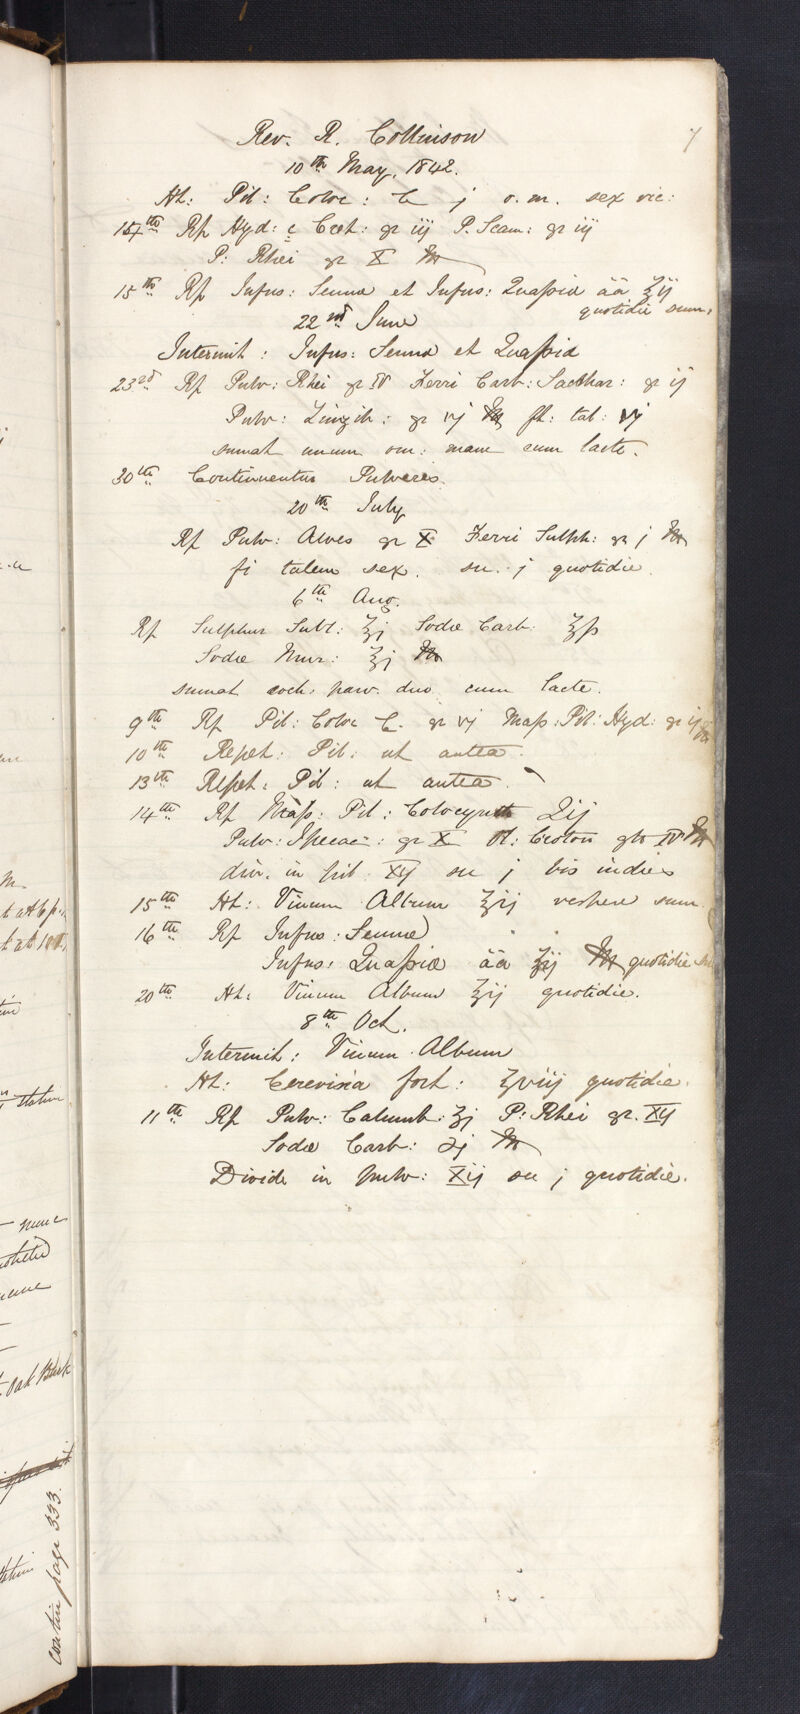 7
Rev. R. Collinson
10th May, 1842.
Ht: Pil: Coloc: C j o.m. sex vic:
14th Rp Hyd: c Cret: gr iij P. Scam: gr iij
P: Rhei gr X M
15th Rp Infus: Sennæ et Infus: Quassia āā ℥ij
quotidie sum:
22nd June
Intermit: Infus: Senna et Quassia
23rd Rp Pulv: Rhei gr IV Ferri Carb: Sacchar: gr ij
Pulv: Zinzib: gr vj M ft: tal: vj
sumat unum om: mane cum lacte.
30th Continuentur Pulveres.
20th July
Rp Pulv: Aloes gr X Ferri Sulph: gr j M
fi talem sex. su. j quotidie.
6th Aug.
Rp Sulphur Subl: ℥j Sodæ Carb. ℥ß
Sodæ Mur: ℥j M
sumat coch: parv. duo cum lacte.
9th Rp Pil: Coloc C. gr vj Mass: Pil: Hyd: gr ij M
10th Repet: Pil: ut antea.
13th Repet: Pil: ut antea.
14th Rp Mass: Pil: Colocynth ʒij
Pulv: Ipecac: gr X Ol: Croton gtt IV M
div. in pil XIJ su j bis indies
15th Ht: Vinum Album ℥iij vespere sum
16th Rp Infus: Sennæ
Infus: Quassiæ āā ℥ij M quotidie
20th Ht: Vinum Album ℥ij quotidie.
8th Oct.
Intermit: Vinum Album
Ht: Cerevisia fort: ℥viij quotidie.
11th Rp Pulv: Calumb: ʒj P: Rhei gr. XIJ
Sodæ Carb: ʒj M
Divide in pulv: Xij su j quotidie.
Oak Bark
contin page 333.